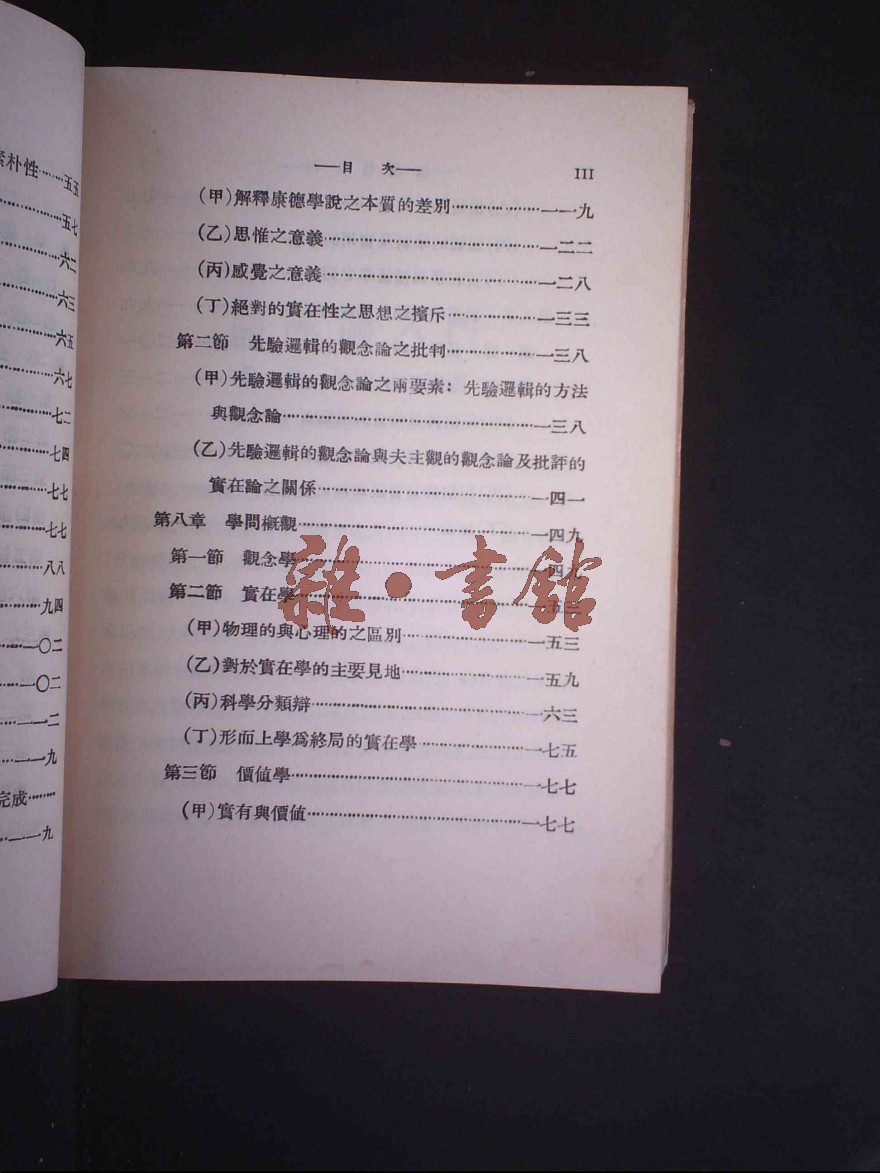 素朴性……五五
……五七
……六二
……六三
……六五
……六七
……七二
……七四
……七七
……七七
……八八
……九四
……一〇二
……一〇二
……一一二
……一一九
完成……
……一一九
——目 次——
III
(甲)解釋康德學說之本質的差別……一一九
(乙)思惟之意義……一二二
(丙)感覺之意義……一二八
(丁)絕對的實在性之思想之擯斥……一三三
第二節 先驗邏輯的觀念論之批判……一三八
(甲)先驗邏輯的觀念論之兩要素:先驗邏輯的方法
與觀念論……一三八
(乙)先驗邏輯的觀念論與夫主觀的觀念論及批評的
實在論之關係……一四一
第八章 學問概觀……一四九
第一節 觀念學……一四九
第二節 實在學……一五三
(甲)物理的與心理的之區別……一五三
(乙)對於實在學的主要見地……一五九
(丙)科學分類辯……一六三
(丁)形而上學爲終局的實在學……一七五
第三節 價値學……一七七
(甲)實有與價値……一七七
雜·書館